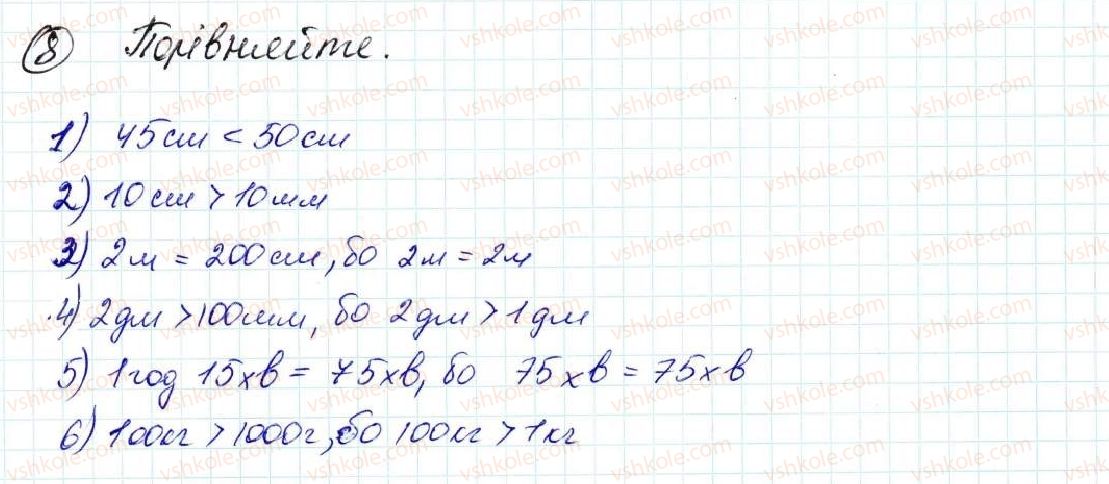 8 Порівняйте.
1) 45см < 50см
2) 10см > 10мм
3) 2м = 200см, бо 2м = 2м
4) 2дм > 100мм, бо 2дм > 1дм
5) 1год 15хв = 75хв, бо 75хв = 75хв
6) 100кг > 1000г, бо 100кг > 1кг
vshkole.com